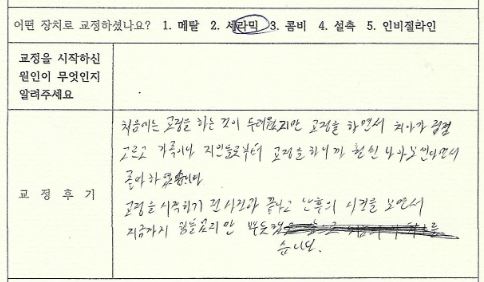 어떤 장치로 교정하셨나요? 1. 메탈 2. 세라믹 3. 콤비 4. 설측 5. 인비절라인
교정을 시작하신
원인이 무엇인지
알려주세요
교 정 후 기
처음에는 교정을 하는 것이 두려웠지만 교정을 하면서 치아가
고르고 가족이나 지인들로부터 교정을 하니까 훨씬 나아
좋아하였습니다
교정을 시작하기 전 사진과 끝나고 난후의 사진을 보면서
지금까지 힘들었지만 뿌듯
습니다.